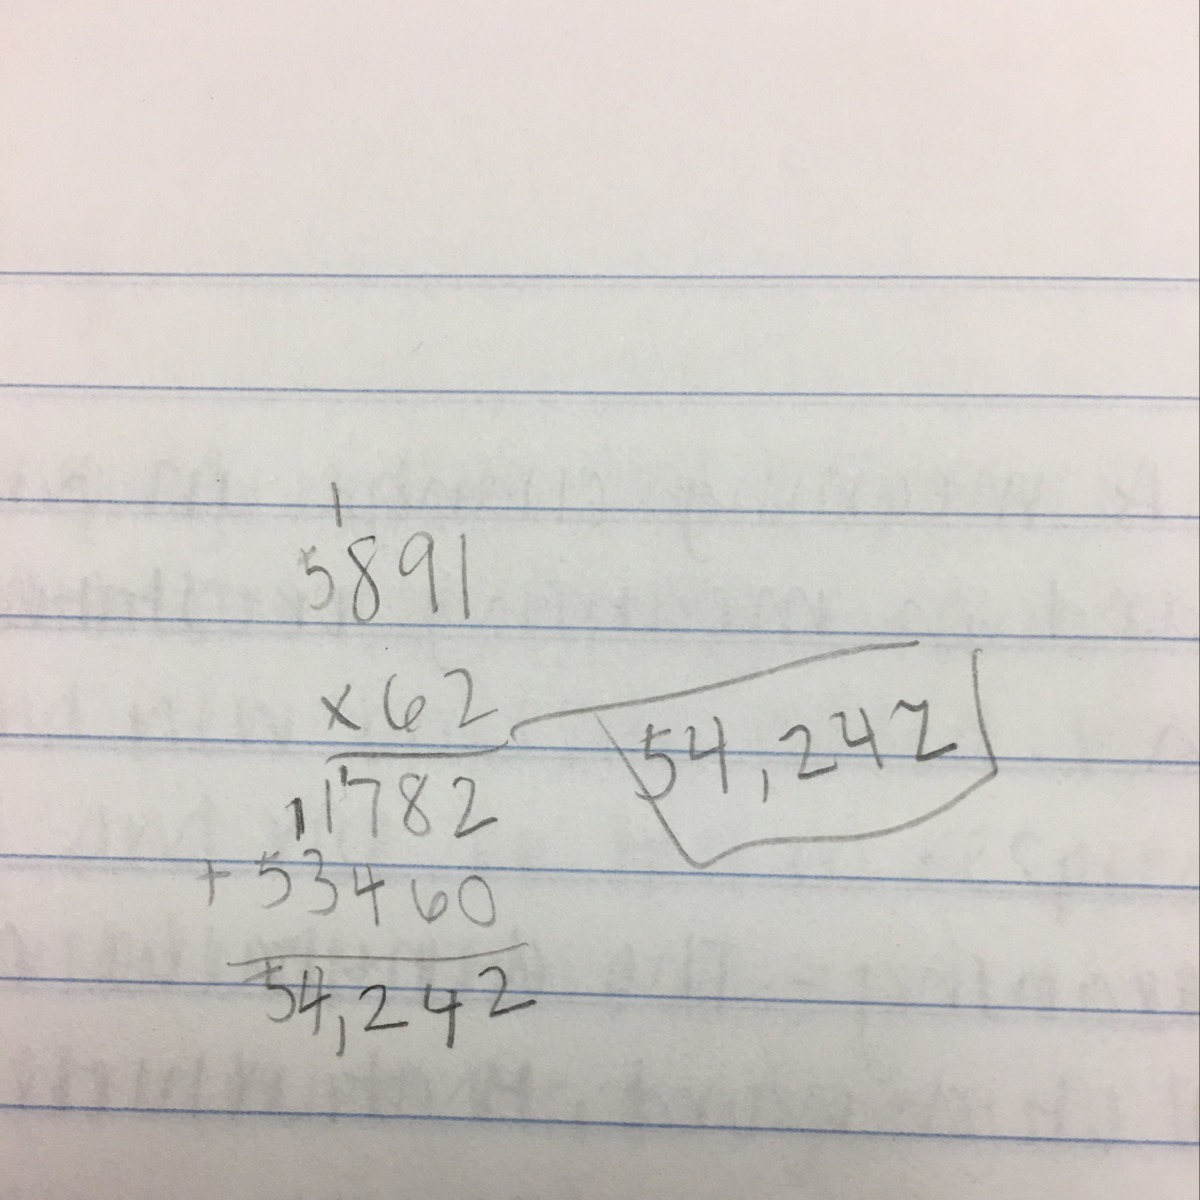 1
5891
x 62
11782
+ 53460
54,242
54,242